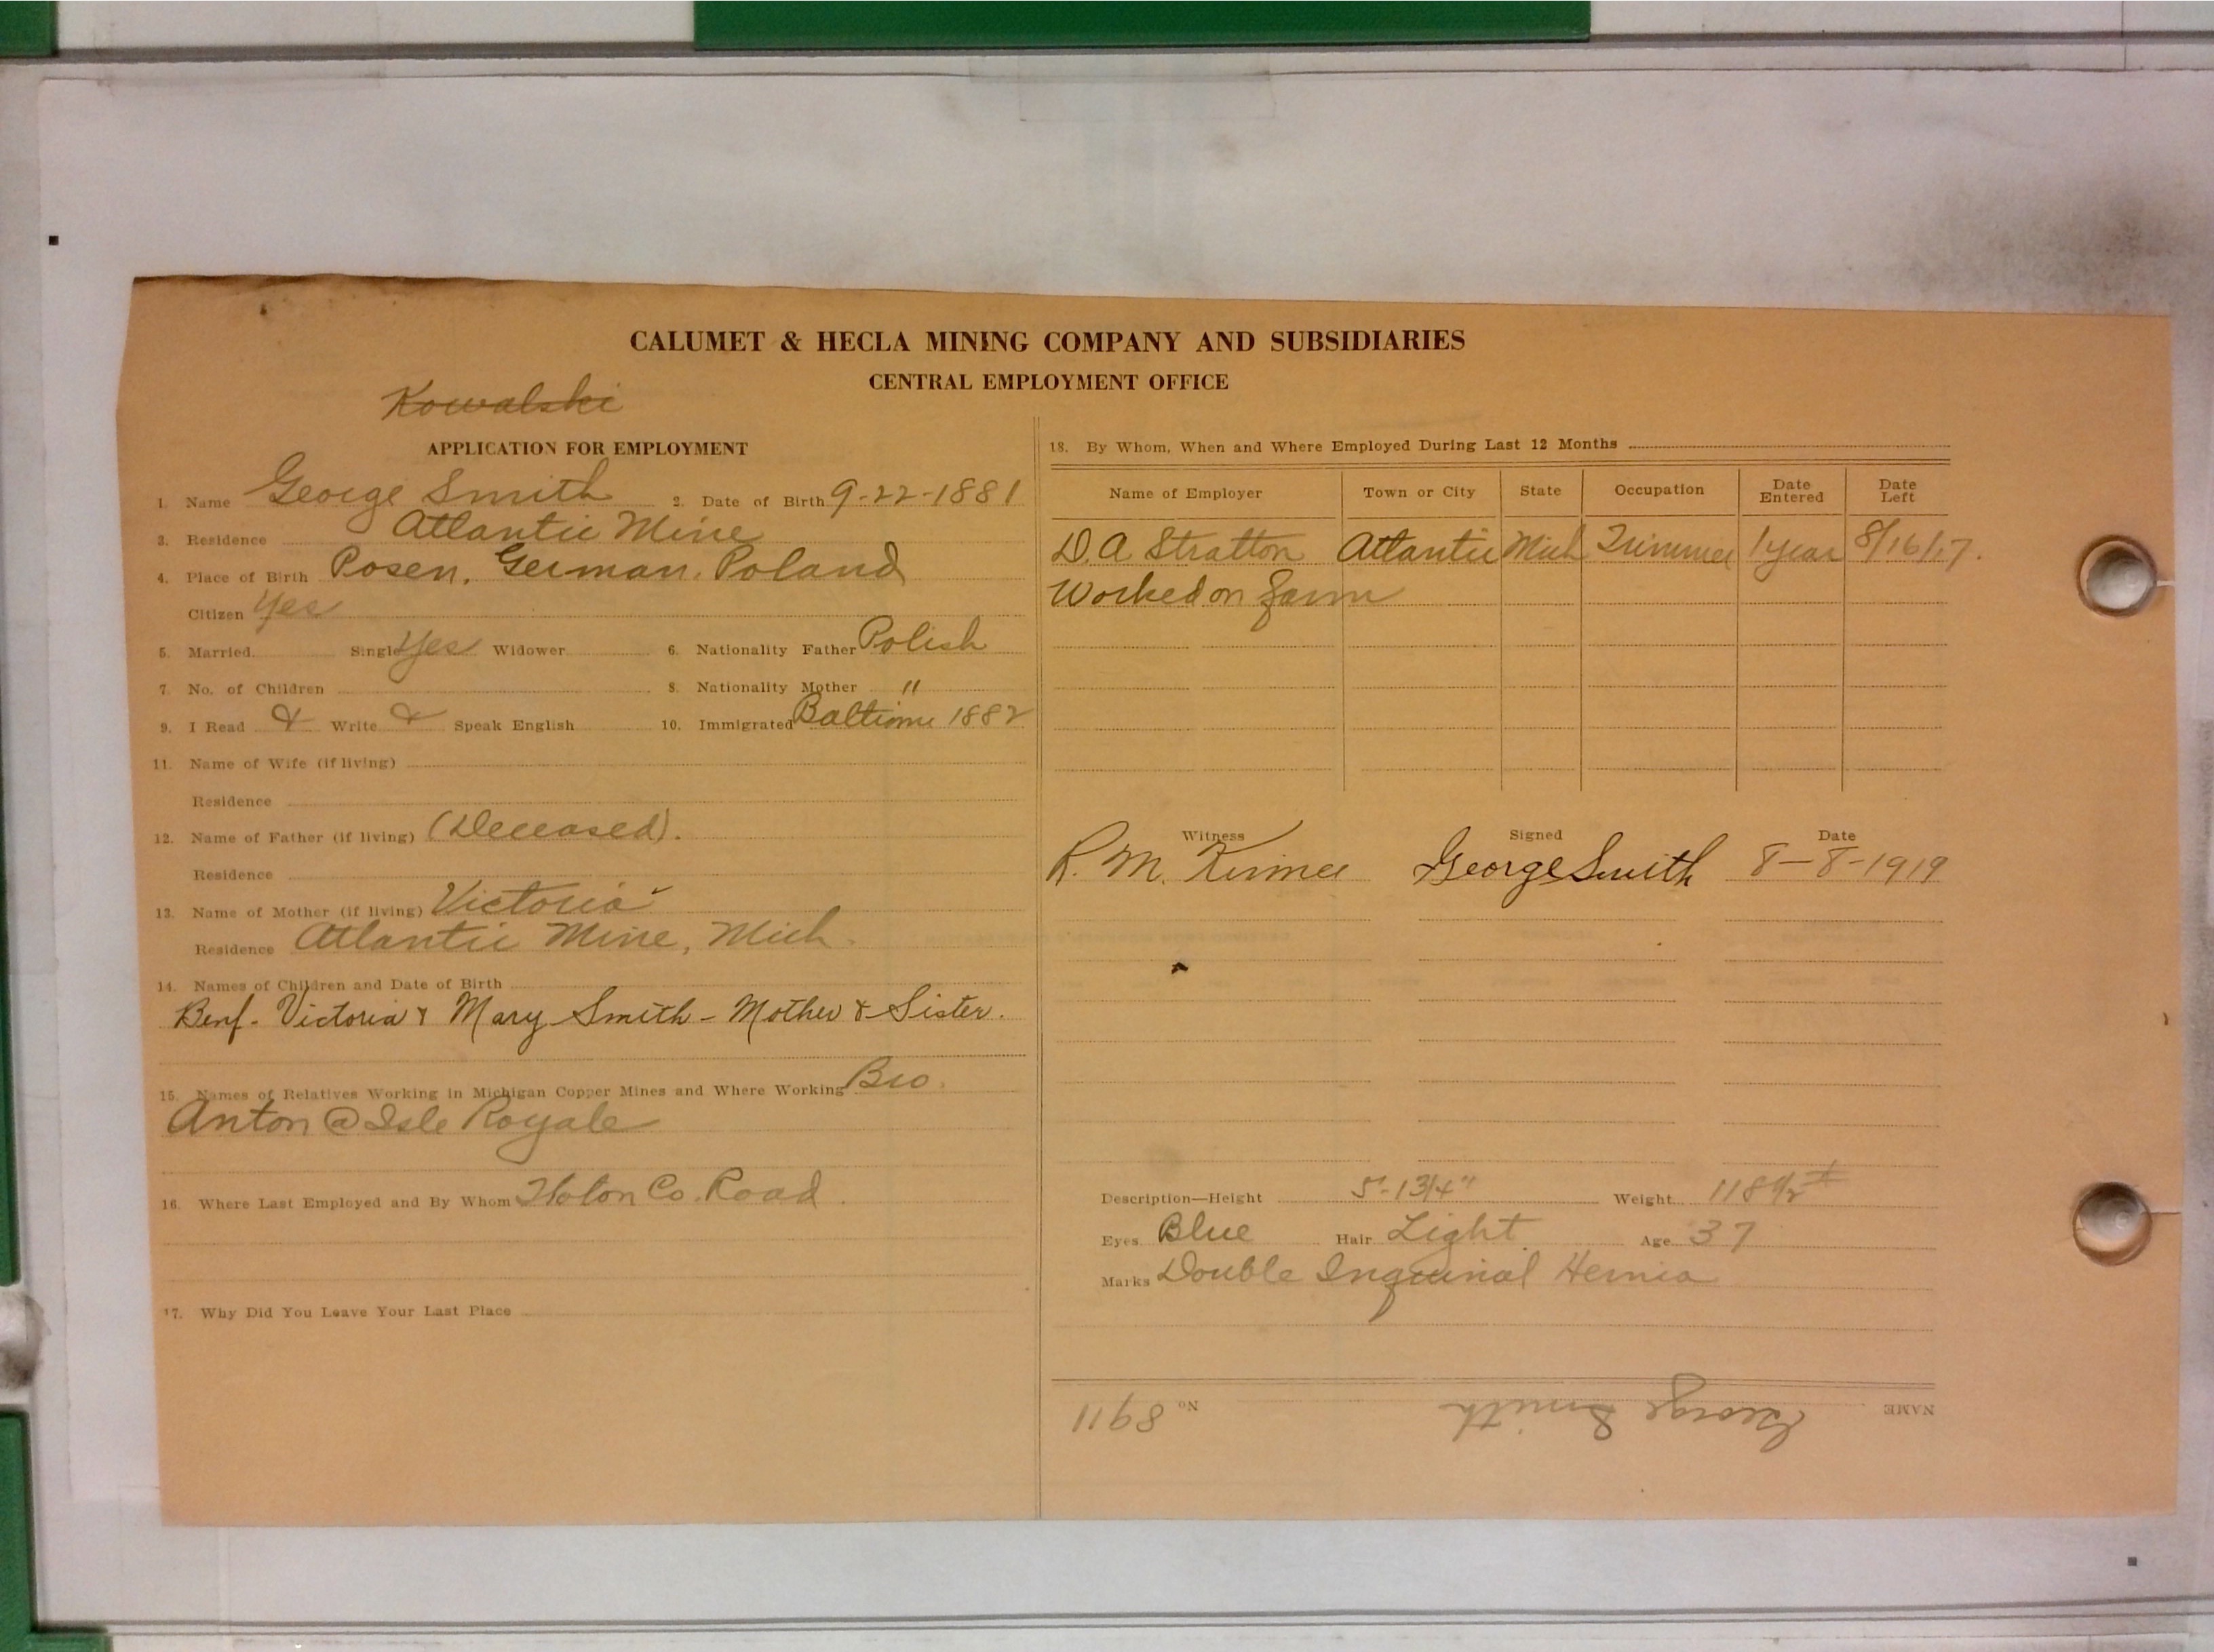 CALUMET & HECLA MINING COMPANY AND SUBSIDIARIES
CENTRAL EMPLOYMENT OFFICE
Kowalski
APPLICATION FOR EMPLOYMENT
1. Name George Smith 2. Date of Birth 9-22-1881
3. Residence Atlantic Mine
4. Place of Birth Posen, German. Poland
Citizen Yes
5. Married Single Yes Widower 6. Nationality Father Polish
7. No. of Children 8. Nationality Mother "
9. I Read & Write & Speak English 10. Immigrated 1882
11. Name of Wife (if living)
Residence
12. Name of Father (if living) (Deceased).
Residence
13. Name of Mother (if living) Victoria
Residence Atlantic Mine, Mich.
14. Names of Children and Date of Birth
Benf. Victoria & Mary Smith - Mother & Sister.
15. Names of Relatives Working in Michigan Copper Mines and Where Working Bro.
Anton @ Isle Royale
16. Where Last Employed and By Whom Co. Road.
17. Why Did You Leave Your Last Place
18. By Whom, When and Where Employed During Last 12 Months
Name of Employer Town or City State Occupation Date Entered Date Left
D. A. Stratton Atlantic Mich Trimmer 1 year 8/16/17.
Worked on farm
Witness Signed Date
R. M. George Smith 8-8-1919
Description—Height 5'-1 3/4" Weight 118 1/2 #
Eyes Blue Hair Light Age 37
Marks Double Inguinal Hernia
NAME George Smith No. 8911